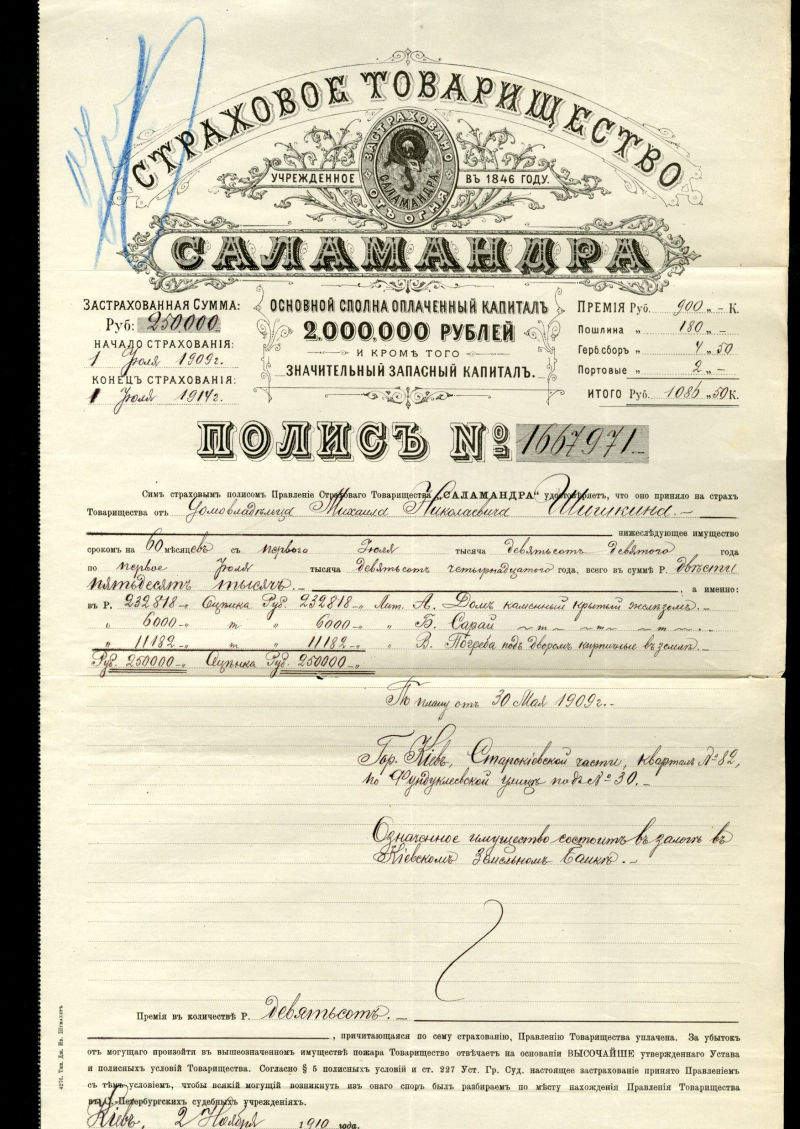 СТРАХОВОЕ ТОВАРИЩЕСТВО
ЗАСТРАХОВАНО
САЛАМАНДРА
ОТЪ ОГНЯ
УЧРЕЖДЕННОЕ ВЪ 1846 ГОДУ.
САЛАМАНДРА
ЗАСТРАХОВАННАЯ СУММА:
Руб: 250000
НАЧАЛО СТРАХОВАНІЯ:
1 Іюля 1909г.
КОНЕЦЪ СТРАХОВАНІЯ:
1 Іюля 1914г.
ОСНОВНОЙ СПОЛНА ОПЛАЧЕННЫЙ КАПИТАЛЪ
2.000,000 РУБЛЕЙ
И КРОМѢ ТОГО
ЗНАЧИТЕЛЬНЫЙ ЗАПАСНЫЙ КАПИТАЛЪ.
ПРЕМІЯ Руб. 900 „ - К.
Пошлина „ 180 „ -
Герб.сборъ „ 4 „ 50
Портовые „ 2 „ -
ИТОГО Руб. 1086 „ 50 К.
ПОЛИСЪ №: 1667971.-
Симъ страховымъ полисомъ Правленіе Страховаго Товарищества „САЛАМАНДРА“ удостовѣряетъ, что оно приняло на страхъ
Товарищества отъ домовладѣльца Михаила Николаевича Шишкина.-
нижеслѣдующее имущество
срокомъ на 60 мѣсяцевъ съ перваго Іюля тысяча девятьсотъ девятого года
по первое Іюля тысяча девятьсотъ четырнадцатого года, всего въ суммѣ Р. двѣсти
пятьдесятъ тысячъ.- , а именно:
въ Р. 232818-„ Оцѣнка Руб. 232818-„ Лит. А. Домъ каменный крытый желѣзомъ.-
„ 6000-„ „ 6000-„ „ Б. Сарай
„ 11182-„ „ 11182-„ „ В. Погреба подъ дворомъ кирпичные въ землѣ.-
Руб. 250000-„ Оцѣнка Руб. 250000-„
Пл. плану отъ 30 Мая 1909г.-
Гор. Кіевъ, Старокіевской части, кварталъ № 82,
по Фундуклеевской улицѣ подъ № 30.-
Означенное имущество состоитъ въ залогѣ въ
Кіевскомъ Земельномъ Банкѣ.-
Премія въ количествѣ Р. девятьсотъ.-
, причитающаяся по сему страхованію, Правленію Товарищества уплачена. За убытокъ
отъ могущаго произойти въ вышеозначенномъ имуществѣ пожара Товарищество отвѣчаетъ на основаніи ВЫСОЧАЙШЕ утвержденнаго Устава
и полисныхъ условій Товарищества. Согласно § 5 полисныхъ условій и ст. 227 Уст. Гр. Суд. настоящее застрахованіе принято Правленіемъ
съ тѣмъ условіемъ, чтобы всякій могущій возникнуть изъ онаго споръ былъ разбираемъ по мѣсту нахожденія Правленія Товарищества
въ С.-Петербургскихъ судебныхъ учрежденіяхъ.
Кіевъ, 2 Ноября 1910 года.